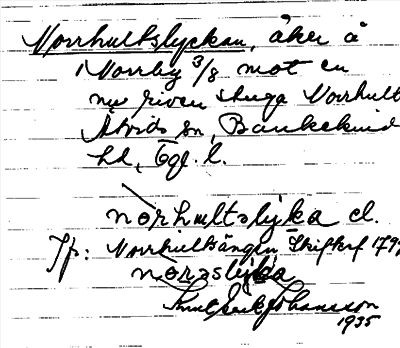 Norrhultslyckan, åker å
Norrby 3/8 mot en
nu riven stuga Norrhult
Åtvids sn, Bankekind
hd, Ögl. l.
norhultslyka el.
Jfr: Norrhultsängen Skifteskf 179
norəslyka
Knut Erik Johansson
1935